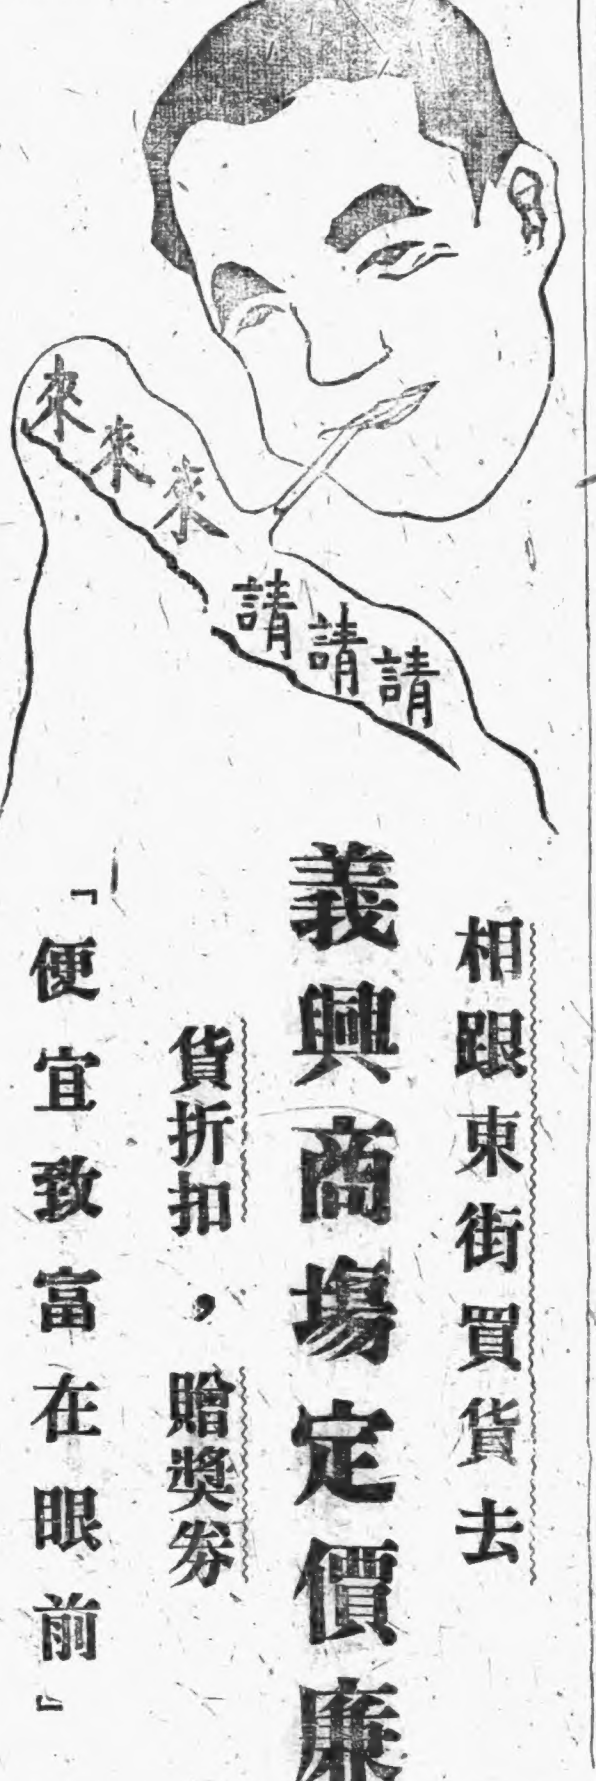 來來來
請請請
相跟東街買貨去
義興商場定價廉
貨折扣，贈獎券
『便宜致富在眼前』